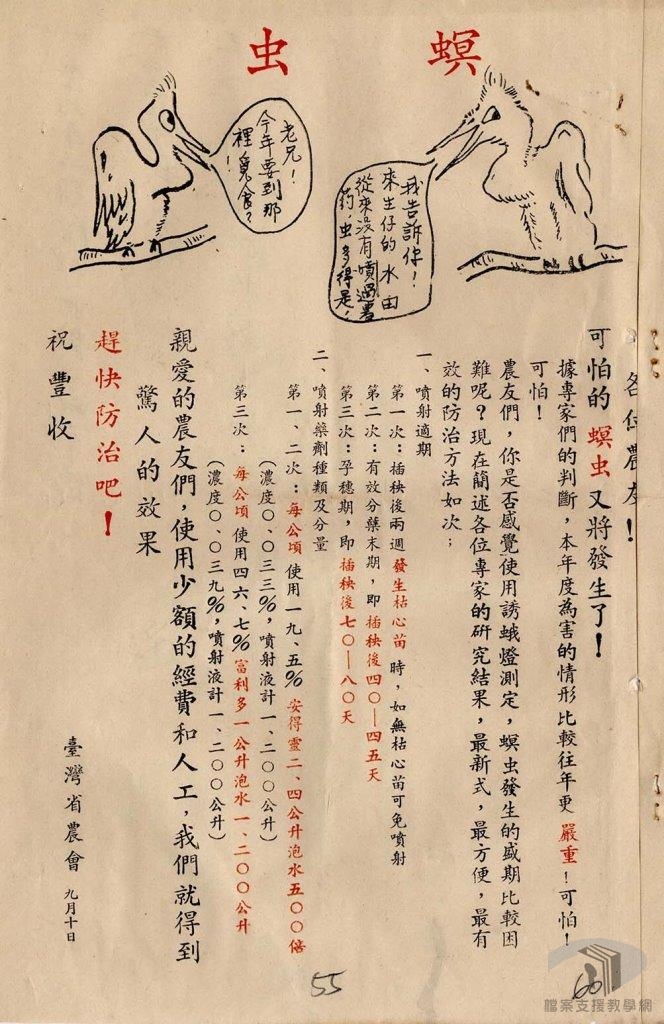 螟虫
我告訴你！
來生仔的水田
從來沒有噴過農
药，虫多得是！
老兄！
今年要到那
裡覓食？
！
各位農友！
可怕的螟虫又將發生了！
據專家們的判斷，本年度為害的情形比較往年更嚴重！可怕！
可怕！
農友們，你是否感覺使用誘蛾燈測定，螟虫發生的盛期比較困
難呢？現在簡述各位專家的研究結果，最新式，最方便，最有
效的防治方法如次：
一、噴射適期
第一次：插秧後兩週發生枯心苗時，如無枯心苗可免噴射
第二次：有效分蘗末期，即插秧後四〇—四五天
第三次：孕穗期，即插秧後七〇—八〇天
二、噴射藥劑種類及分量
第一、二次：每公頃使用一九、五%安得靈二、四公升泡水五〇〇倍
（濃度〇、〇三三%，噴射液計一、二〇〇公升）
第三次：每公頃使用四六、七%富利多一公升泡水一、二〇〇公升
（濃度〇、〇三九%，噴射液計一、二〇〇公升）
親愛的農友們，使用少額的經費和人工，我們就得到
驚人的效果
趕快防治吧！
祝豐收
臺灣省農會 九月十日
55
60
檔案支援教學網